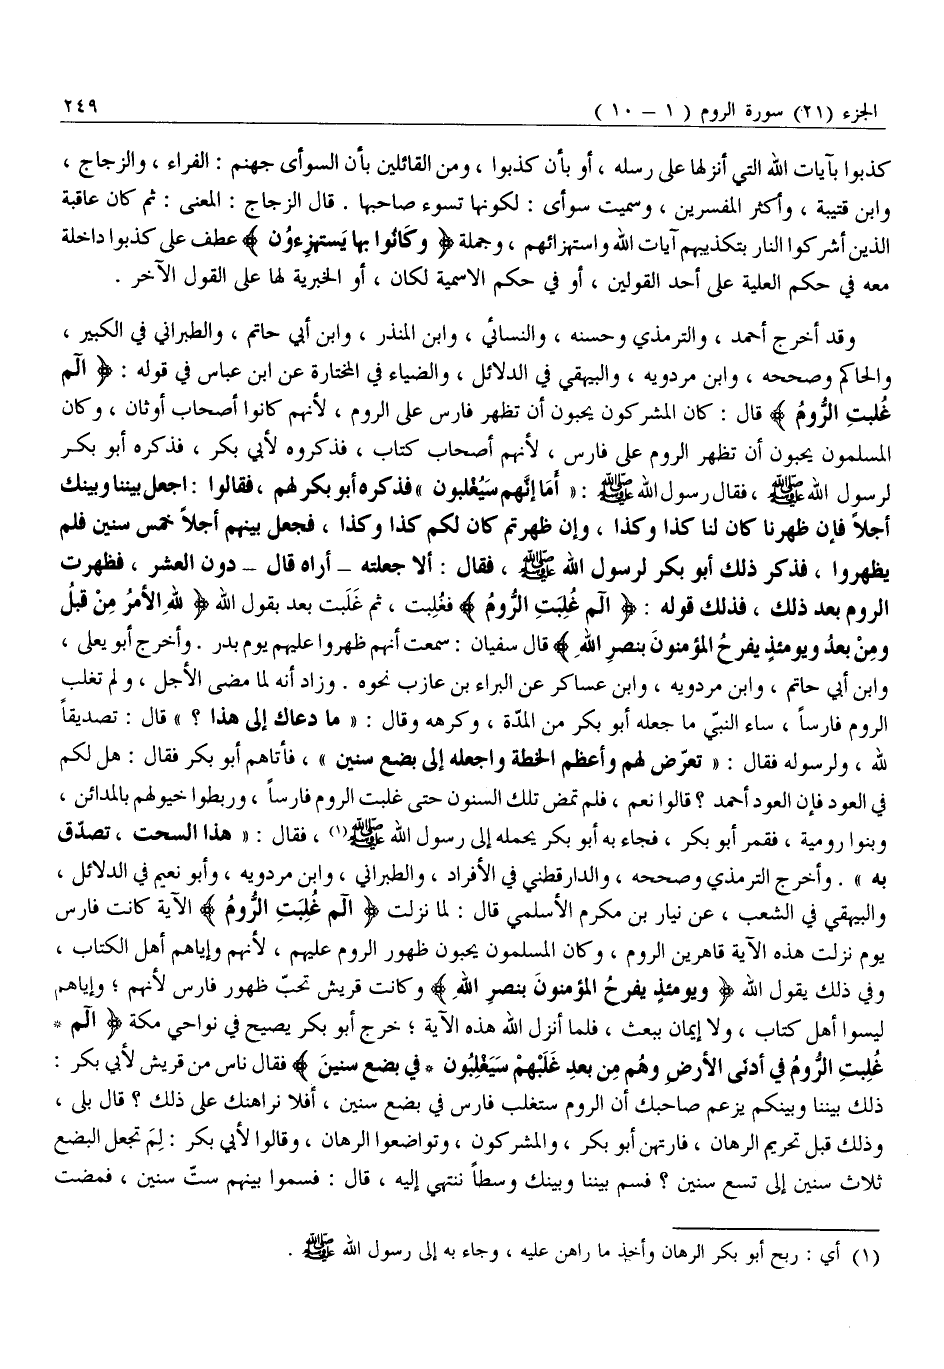 الجزء (٢١) سورة الروم ( ١ – ١٠ )
٢٤٩
كذبوا بآيات الله التي أنزلها على رسله ، أو بأن كذبوا ، ومن القائلين بأن السوأى جهنم : الفراء ، والزجاج ،
وابن قتيبة ، وأكثر المفسرين ، وسميت سوأى : لكونها تسوء صاحبها . قال الزجاج : المعنى : ثم كان عاقبة
الذين أشركوا النار بتكذيبهم آيات الله واستهزائهم ، وجملة ﴿ وكَانُوا بها يَستهزءوُن ﴾ عطف على كذبوا داخلة
معه في حكم العلية على أحد القولين ، أو في حكم الاسمية لكان ، أو الخبرية لها على القول الآخر .
وقد أخرج أحمد ، والترمذي وحسنه ، والنسائي ، وابن المنذر ، وابن أبي حاتم ، والطبراني في الكبير ،
والحاكم وصححه ، وابن مردويه ، والبيهقي في الدلائل ، والضياء في المختارة عن ابن عباس في قوله : ﴿ الٓم
غُلبتِ الرُّومُ ﴾ قال : كان المشركون يحبون أن تظهر فارس على الروم ، لأنهم كانوا أصحاب أوثان ، وكان
المسلمون يحبون أن تظهر الروم على فارس ، لأنهم أصحاب كتاب ، فذكروه لأبي بكر ، فذكره أبو بكر
لرسول الله ﷺ ، فقال رسول الله ﷺ : « أَمَا إنَّهم سَيُغْلبون » فذكره أبو بكر لهم ، فقالوا : اجعل بيننا وبينك
أجلاً فإن ظهرنا كان لنا كذا وكذا ، وإن ظهرتم كان لكم كذا وكذا ، فجعل بينهم أجلاً خمس سنين فلم
يظهروا ، فذكر ذلك أبو بكر لرسول الله ﷺ ، فقال : ألا جعلته – أراه قال – دون العشر ، فظهرت
الروم بعد ذلك ، فذلك قوله : ﴿ الٓم غُلبَتِ الرُّومُ ﴾ فغُلبت ، ثم غَلَبت بعد بقول الله ﴿ للهِ الأمرُ مِنْ قبلُ
ومِنْ بعدُ ويومئذٍ يفرحُ المؤمنونَ بنصرِ اللهِ ﴾ قال سفيان : سمعت أنهم ظهروا عليهم يوم بدر . وأخرج أبو يعلى ،
وابن أبي حاتم ، وابن مردويه ، وابن عساكر عن البراء بن عازب نحوه . وزاد أنه لما مضى الأجل ، ولم تغلب
الروم فارساً ، ساء النبيّ ما جعله أبو بكر من المدّة ، وكرهه وقال : « ما دعاك إلى هذا ؟ » قال : تصديقاً
لله ، ولرسوله فقال : « تعرّض لهم وأعظم الخطة واجعله إلى بضع سنين » ، فأتاهم أبو بكر فقال : هل لكم
في العود فإن العود أحمد ؟ قالوا نعم ، فلم تمض تلك السنون حتى غلبت الروم فارساً ، وربطوا خيولهم بالمدائن ،
وبنوا رومية ، فقمر أبو بكر ، فجاء به أبو بكر يحمله إلى رسول الله ﷺ(١) ، فقال : « هذا السحت ، تصدّق
به » . وأخرج الترمذي وصححه ، والدارقطني في الأفراد ، والطبراني ، وابن مردويه ، وأبو نعيم في الدلائل ،
والبيهقي في الشعب ، عن نيار بن مكرم الأسلمي قال : لما نزلت ﴿ الٓم غُلبَتِ الرُّومُ ﴾ الآية كانت فارس
يوم نزلت هذه الآية قاهرين الروم ، وكان المسلمون يحبون ظهور الروم عليهم ، لأنهم وإياهم أهل الكتاب ،
وفي ذلك يقول الله ﴿ ويومئذٍ يفرحُ المؤمنونَ بنصرِ اللهِ ﴾ وكانت قريش تحبّ ظهور فارس لأنهم ؛ وإياهم
ليسوا أهل كتاب ، ولا إيمان ببعث ، فلما أنزل الله هذه الآية ؛ خرج أبو بكر يصيح في نواحي مكة ﴿ الٓم *
غُلِبتِ الرُّومُ في أدنَى الأرضِ وهُم مِن بعدِ غَلَبْهِمْ سَيَغْلِبُون * في بضعِ سنينَ ﴾ فقال ناس من قريش لأبي بكر :
ذلك بيننا وبينكم يزعم صاحبك أن الروم ستغلب فارس في بضع سنين ، أفلا نراهنك على ذلك ؟ قال بلى ،
وذلك قبل تحريم الرهان ، فارتهن أبو بكر ، والمشركون ، وتواضعوا الرهان ، وقالوا لأبي بكر : لِمَ تجعل البضع
ثلاث سنين إلى تسع سنين ؟ فسم بيننا وبينك وسطاً ننتهي إليه ، قال : فسموا بينهم ستّ سنين ، فمضت
(١) أي : ربح أبو بكر الرهان وأخذ ما راهن عليه ، وجاء به إلى رسول الله ﷺ .